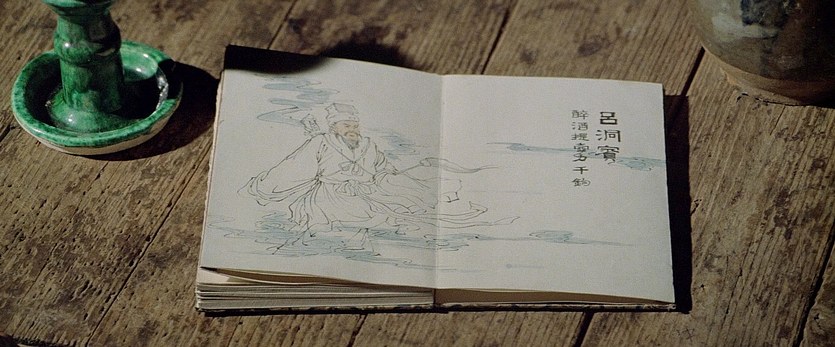 呂洞賓
醉酒提壺力千鈞